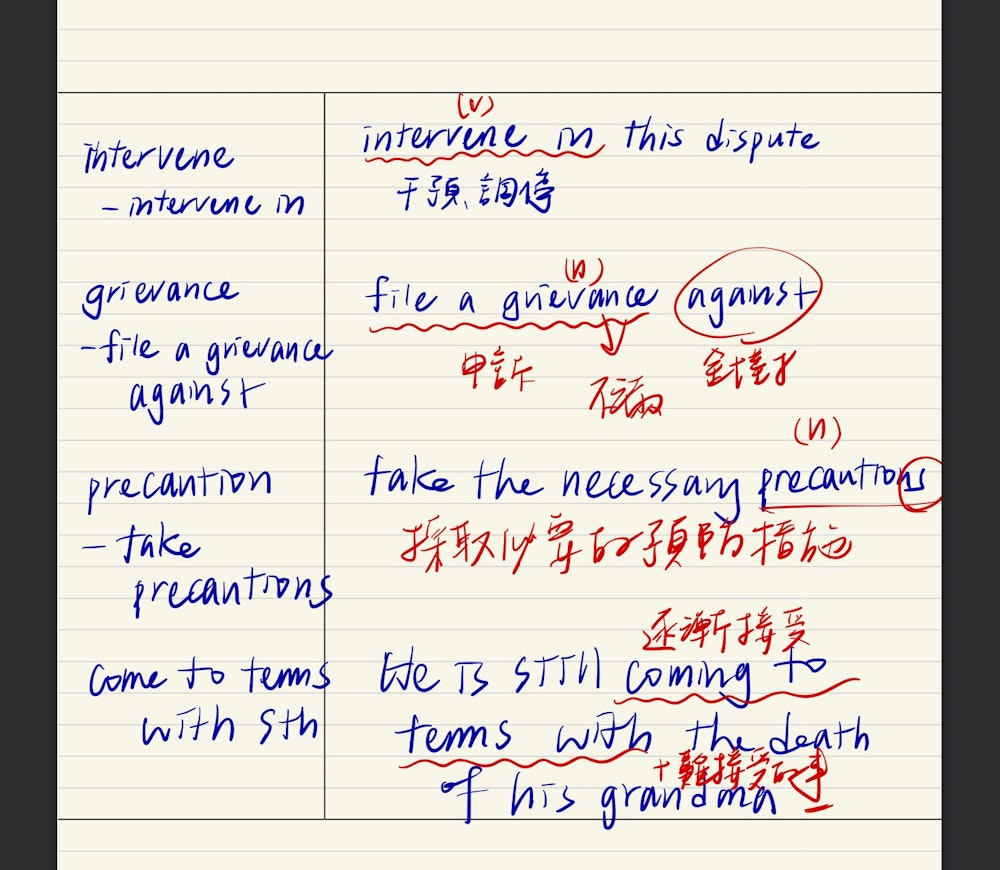 intervene
- intervene in
(v)
intervene in this dispute
干預、調停
grievance
- file a grievance
against
(n)
file a grievance against
申訴 不滿 針對
precaution
- take
precautions
(n)
take the necessary precautions
採取必要的預防措施
come to terms
with sth
逐漸接受
He is still coming to
terms with the death
+難接受的事
of his grandma